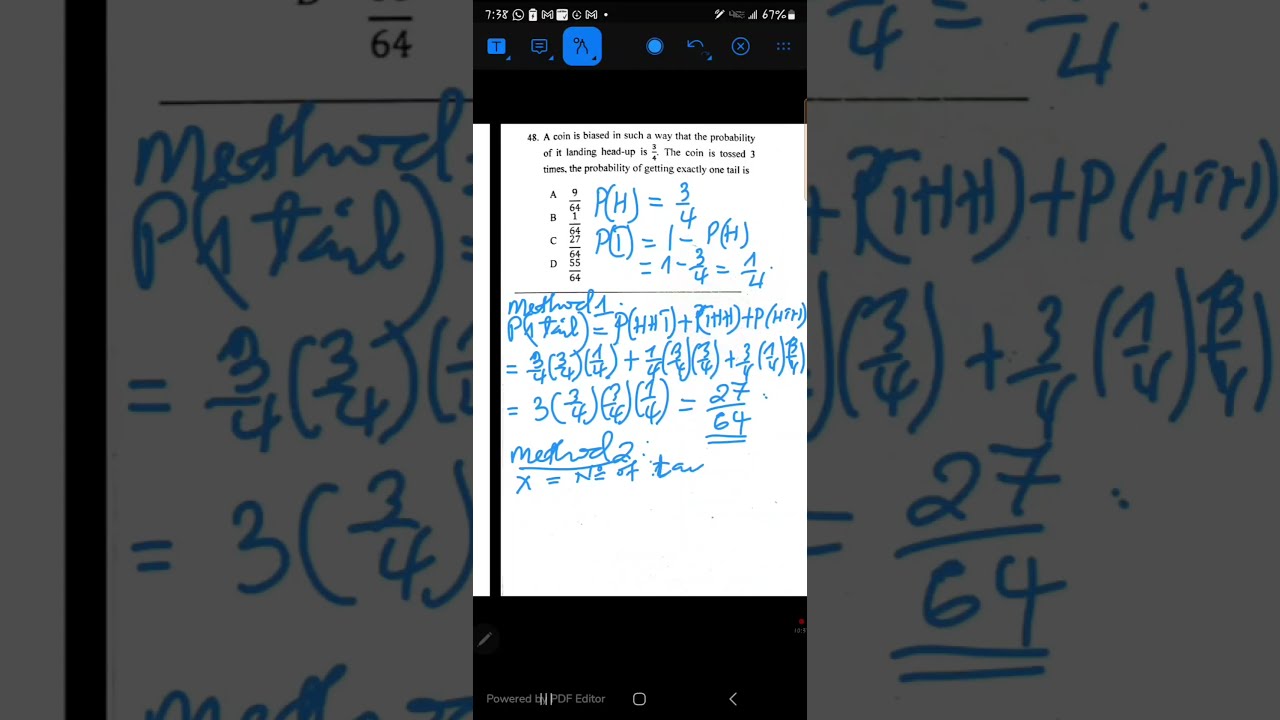 7:38 67%
T
48. A coin is biased in such a way that the probability
of it landing head-up is 3/4. The coin is tossed 3
times, the probability of getting exactly one tail is
A 9/64
B 1/64
C 27/64
D 55/64
P(H) = 3/4
P(T) = 1 - P(H)
= 1 - 3/4 = 1/4.
Method 1:
P(1 tail) = P(HHT) + P(THH) + P(HTH)
= 3/4(3/4)(1/4) + 1/4(3/4)(3/4) + 3/4(1/4)(3/4)
= 3(3/4)(3/4)(1/4) = 27/64.
Method 2:
X = No of
Powered by PDF Editor